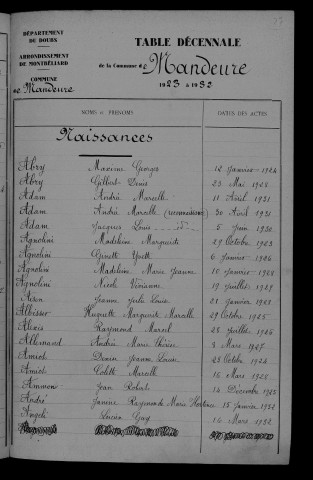 DÉPARTEMENT
DU DOUBS
ARRONDISSEMENT
DE MONTBÉLIARD
COMMUNE
de Mandeure
TABLE DÉCENNALE
de la Commune de Mandeure
1923 à 1932
NOMS et PRÉNOMS
DATES DES ACTES
Naissances
Abry Maxime Georges 12 Janvier 1924
Abry Gilbert Denis 23 Mai 1928
Adam André Marcelle 11 Avril 1931
Adam André Marcelle (reconnaissance) 30 Avril 1931
Adam Jacques Louis 5 Juin 1930
Agnolini Madeleine Marguerite 29 Octobre 1923
Agnolini Ginette Yvette 6 Janvier 1926
Agnolini Madeleine Marie Jeanne 10 Janvier 1928
Agnolini Nicole Vivianne 19 Juillet 1929
Jeanne Louise 21 Janvier 1923
Albisser Huguette Marguerite Marcelle 29 Octobre 1926
Alixis Raymond Marcel 28 Juillet 1926
Allemand Andrée Marie Thérèse 3 Mars 1927
Amiot Jeanne Louise 23 Octobre 1924
Amiot Colette Marcelle 16 Mars 1928
Ammon Jean Robert 14 Décembre 1925
André Janine Raymonde Marie Hortense 15 Janvier 1932
Angeli Lucien Guy 16 Mars 1932